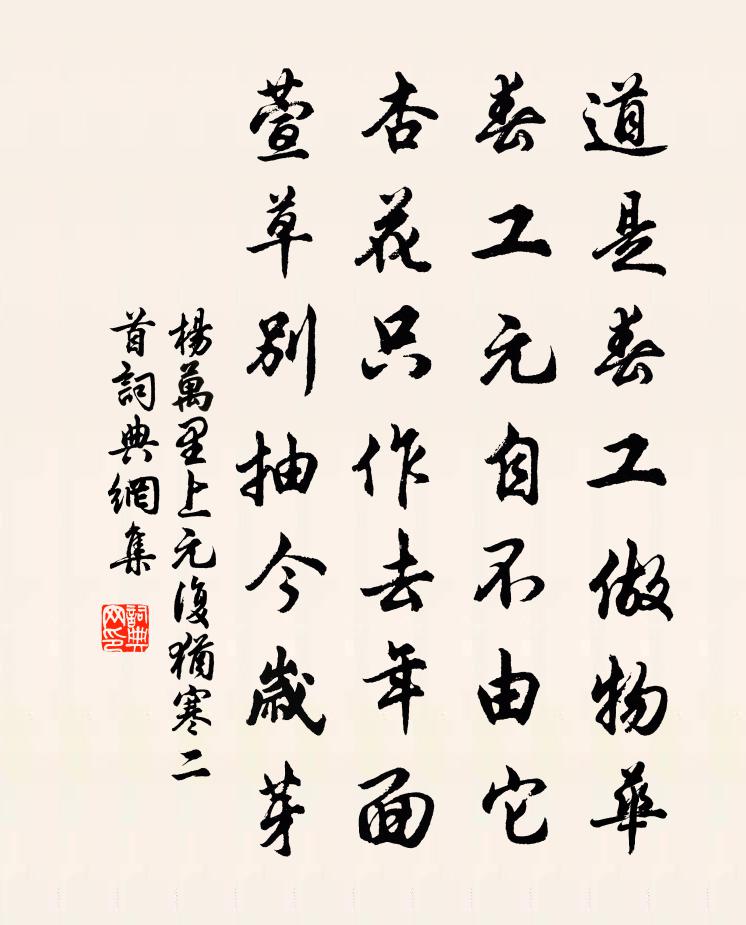 道是春工做物華
春工元自不由它
杏花只作去年面
萱草別抽今歲芽
楊萬里上元復猶寒二
首詞典網集
詞典
网印